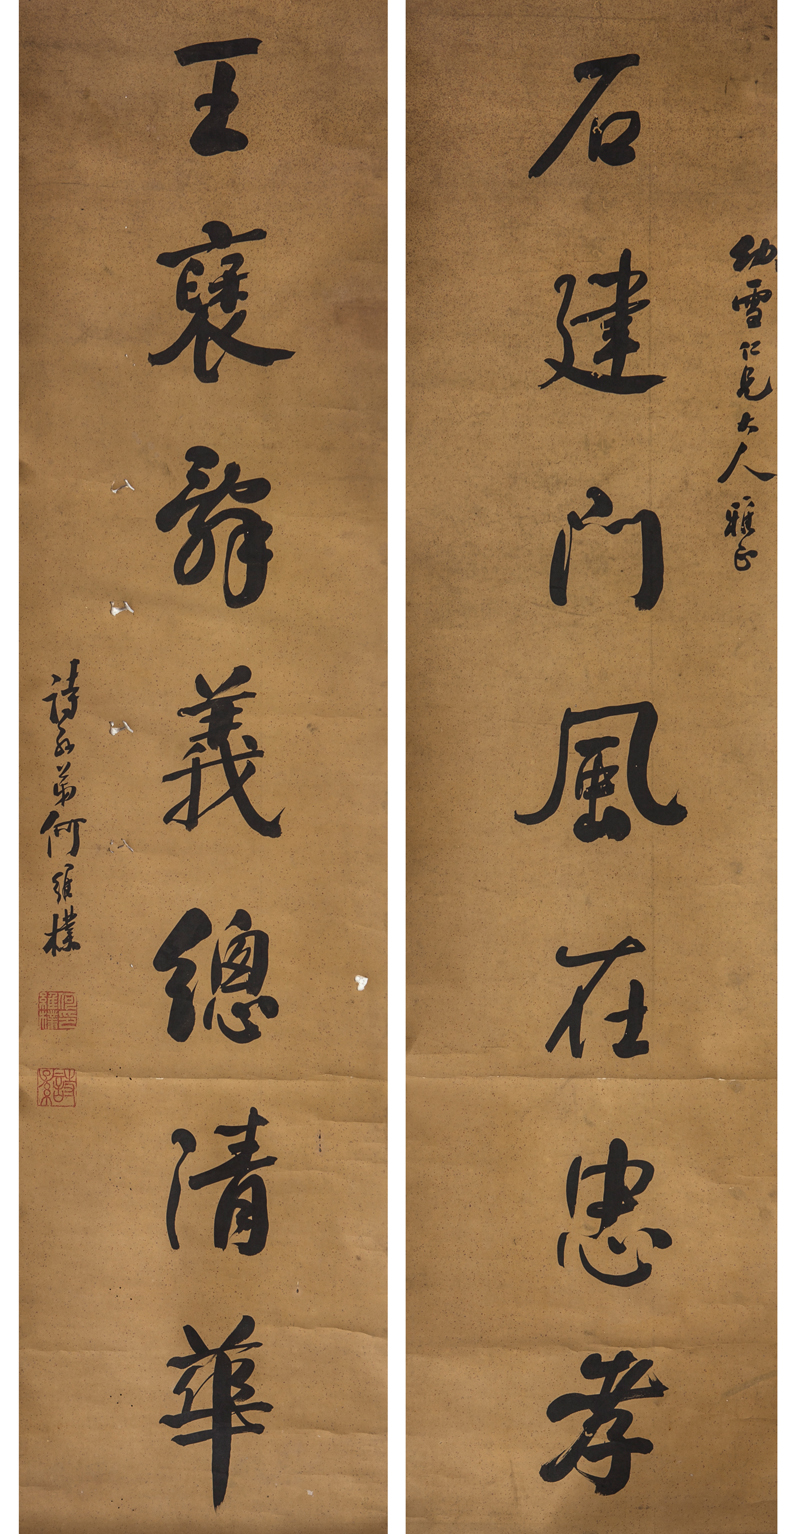 幼雪仁兄大人雅正
石建門風在忠孝
王褒辭義總清華
詩孫弟何維樸
何印維樸
詩孫